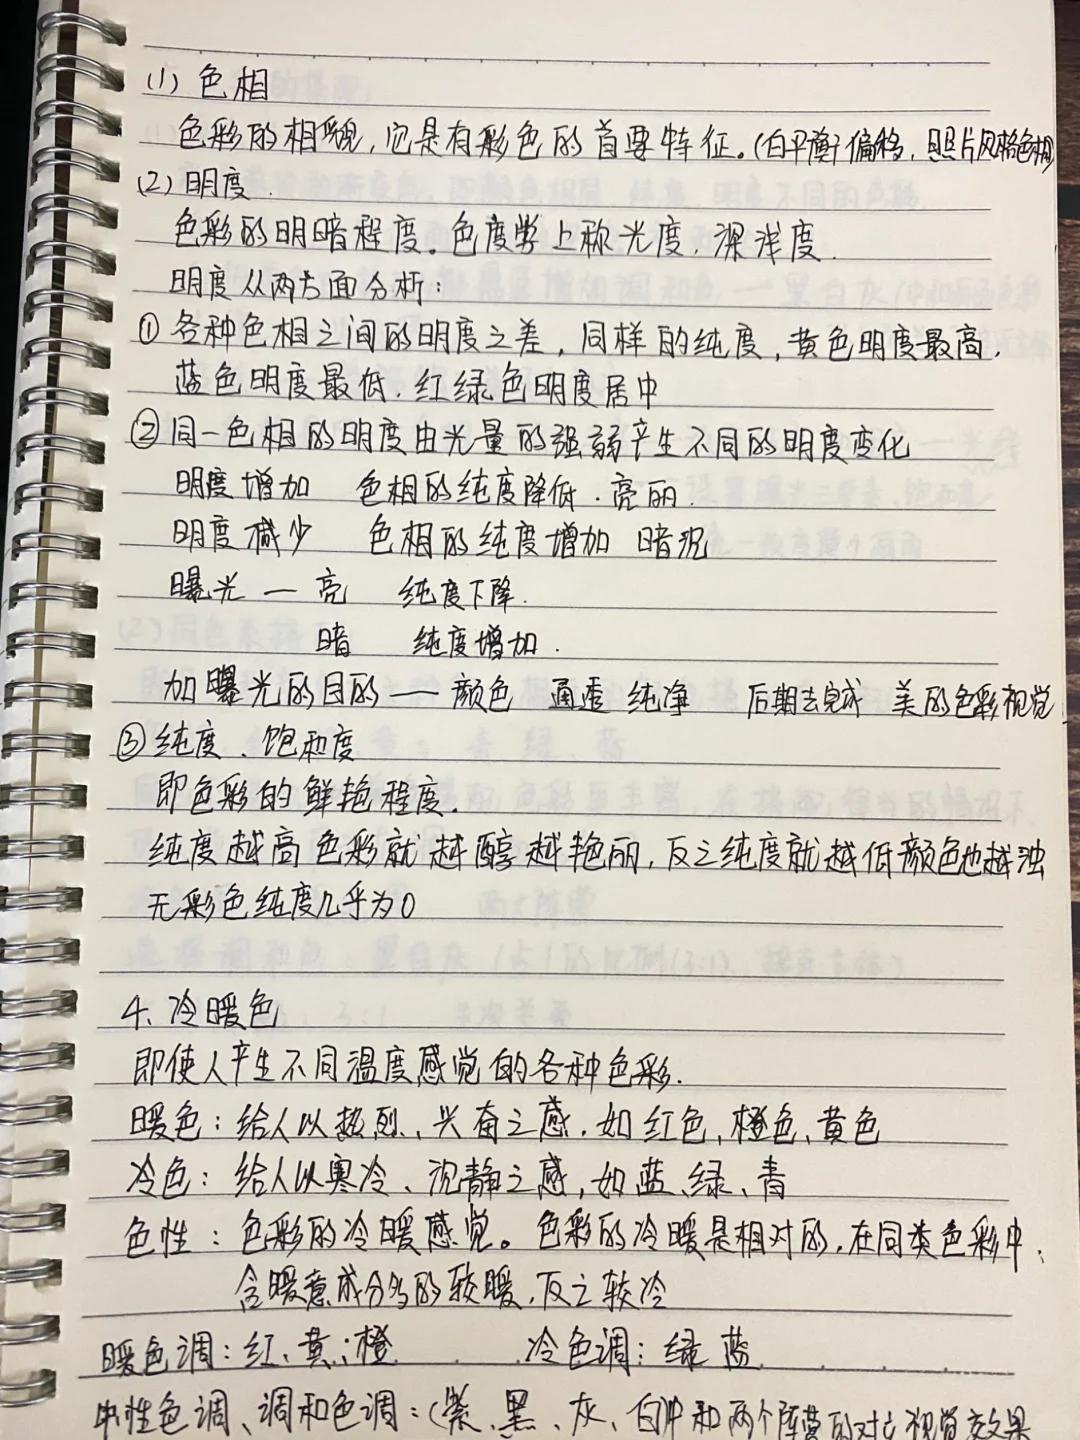 (1) 色相
色彩的相貌,它是有彩色的首要特征。(白平衡)偏移,照片风格色相
(2) 明度.
色彩的明暗程度。色度学上称光度,深浅度.
明度从两方面分析:
① 各种色相之间的明度之差,同样的纯度,黄色明度最高,
蓝色明度最低,红绿色明度居中
② 同一色相的明度由光量的强弱产生不同的明度变化
明度增加 色相的纯度降低.亮丽.
明度减少 色相的纯度增加 暗沉
曝光 — 亮 纯度下降.
暗 纯度增加.
加曝光的目的 — 颜色 通透 纯净 后期去完成 美的色彩视觉
③ 纯度、饱和度
即色彩的鲜艳程度.
纯度越高色彩就越醇越艳丽,反之纯度就越低颜色也越浊
无彩色纯度几乎为0
4、冷暖色
即使人产生不同温度感觉的各种色彩.
暖色:给人以热烈、兴奋之感,如红色,橙色、黄色
冷色:给人以寒冷、沉静之感,如蓝、绿、青
色性:色彩的冷暖感觉。色彩的冷暖是相对的,在同类色彩中,
含暖意成分多的较暖,反之较冷
暖色调:红、黄、橙 冷色调:绿 蓝
中性色调、调和色调:(紫、黑、灰、白冲和两个阵营的对立视觉效果